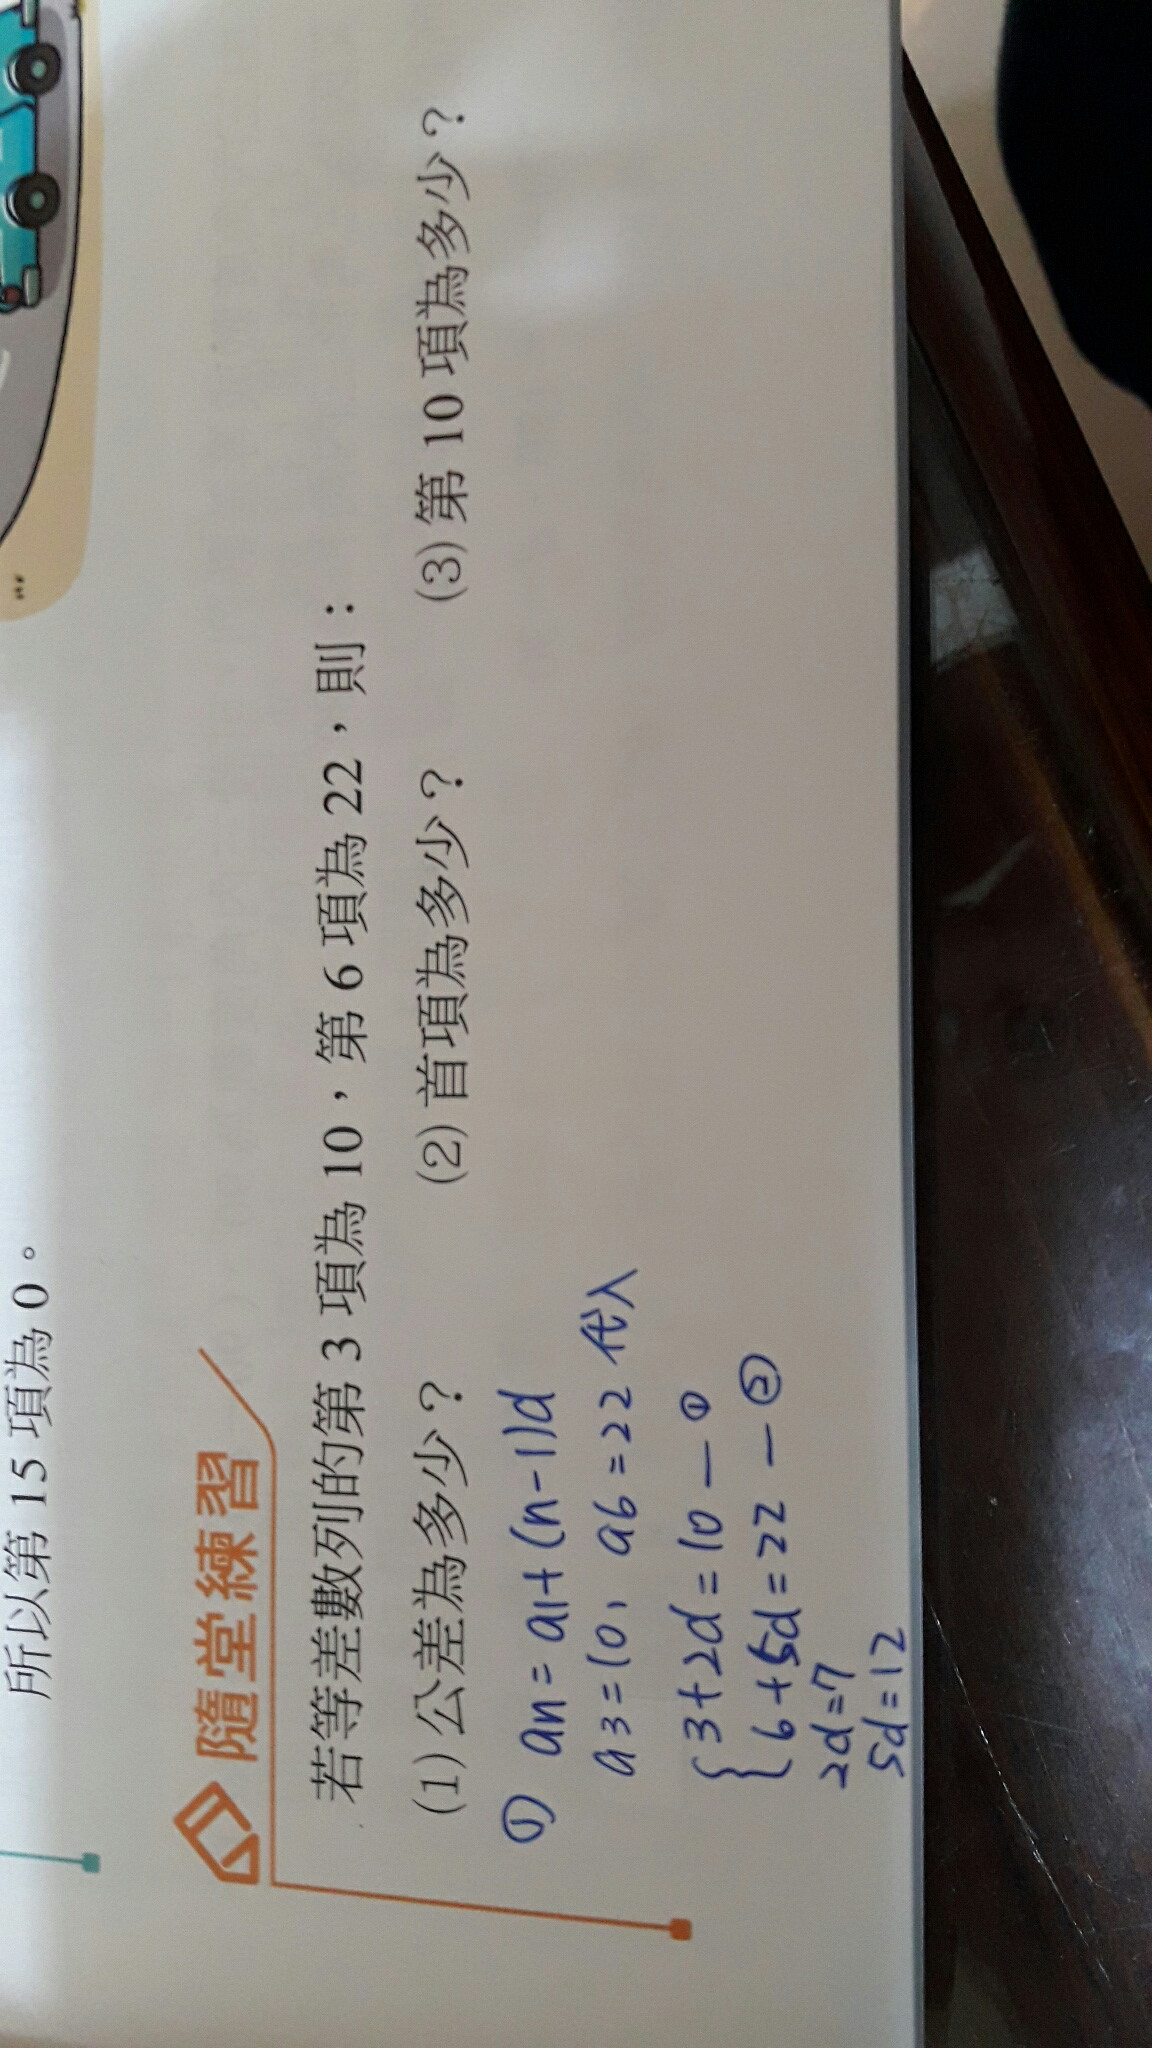 所以第 15 項為 0。
隨堂練習
若等差數列的第 3 項為 10，第 6 項為 22，則：
(1) 公差為多少？ (2) 首項為多少？ (3) 第 10 項為多少？
① an = a1 + (n-1)d
a3 = 10, a6 = 22 代入
{ 3+2d = 10 — ①
6+5d = 22 — ②
2d=7
5d=12